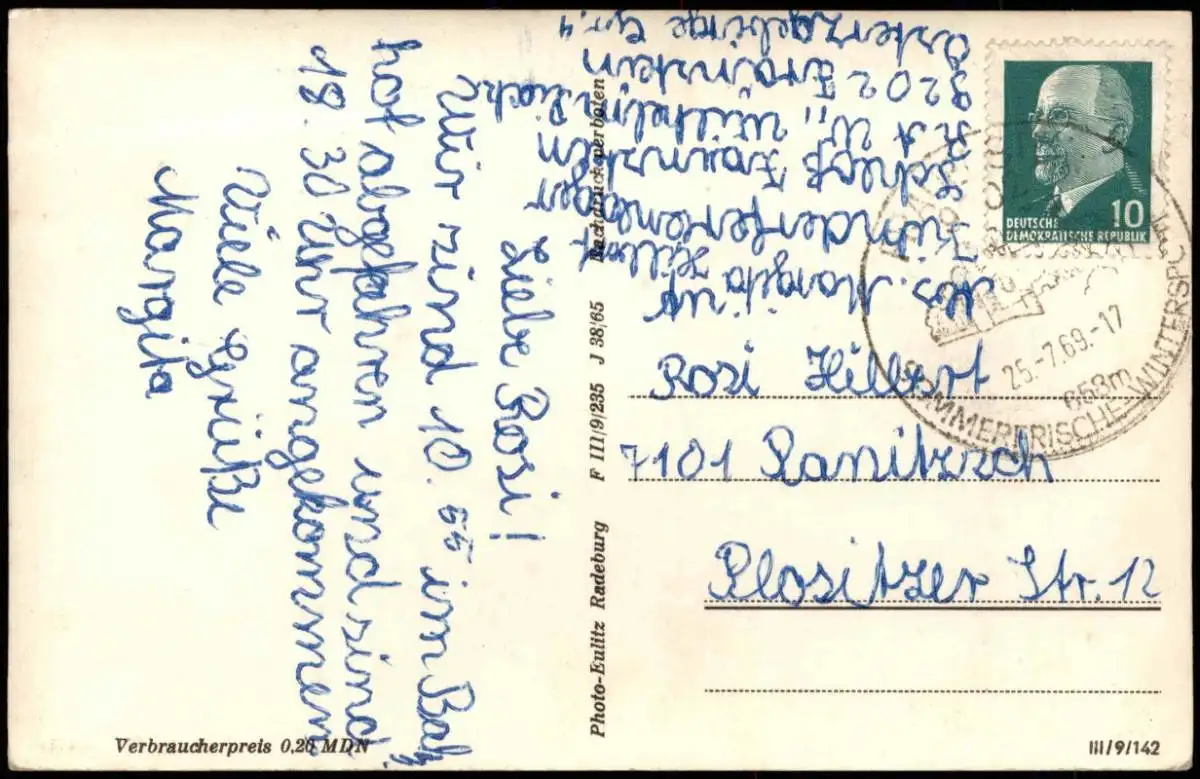 Liebe Rosi!
Wir sind 10.55 im Bah
hof abgefahren und sind
18.30 Uhr angekommen
Viele Grüße
Margita
Abs. Margita Hillert
Kinderferienlager
Schloß Fraunstein
"Wilhelm Pieck"
9202 Frainstein
Osterzgebirge Gr. 4
Rosi Hillert
7101 Panitzsch
Plositzer Str. 12
DEUTSCHE
DEMOKRATISCHE REPUBLIK
10
25.-7.69.-17
SOMMERFRISCHE WINTERSPORT
Nachdruck verboten
Photo-Eulitz Radeburg F III/9/235 J 38/65
Verbraucherpreis 0,20 MDN
III/9/142